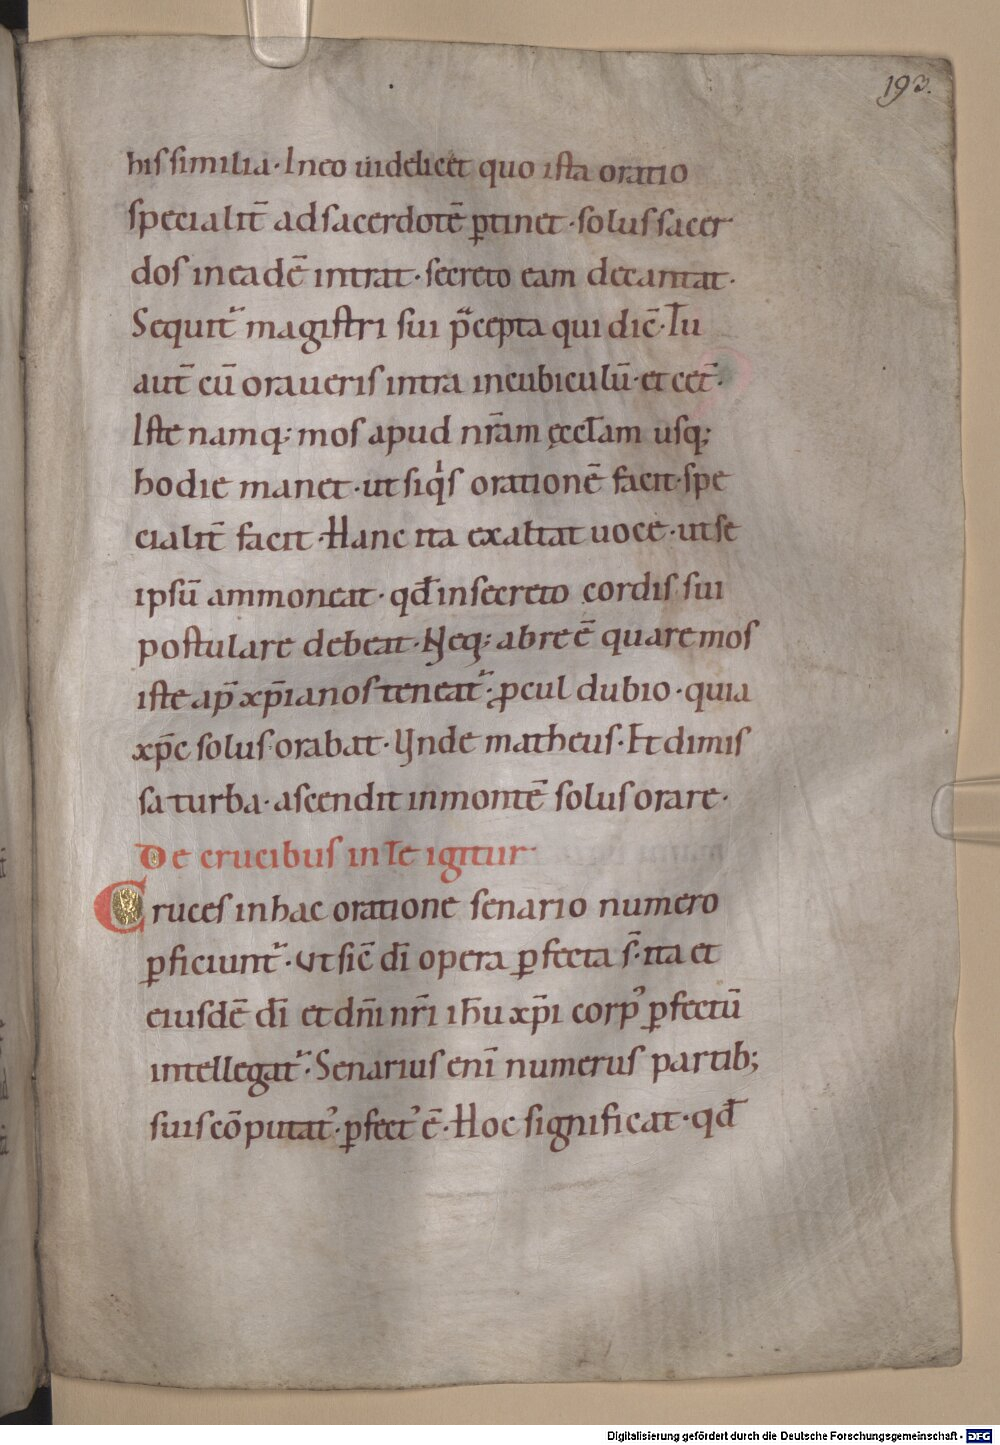 193.
his similia· In eo uidelicet quo ista oratio
specialit̄ ad sacerdotē ꝑtinet· solus sacer
dos in eadē intrat· secreto eam decantat·
Sequit̄ magistri sui p̄cepta qui dic̄· Tu
aut̄ cū oraueris intra in cubiculū· et cet̄·
Iste namq; mos apud nr̄am ęccl̄am usq;
hodie manet· ut siqͥs orationē facit· spe
cialit̄ facit· Hanc ita exaltat uoce· ut se
ipsū ammoneat· qđ in secreto cordis sui
postulare debeat· Neq; ab re ē quare mos
iste ap̄ xp̄ianos teneat̄· ꝓcul dubio· quia
xp̄c solus orabat· Ynde matheus· Et dimis
sa turba· ascendit in montē solus orare·
De crucibus in Te igitur·
Cruces in hac oratione senario numero
ꝑficiunt̄· Ut sic̄ dī opera ꝑfecta s̄· ita et
eiusdē dī et dn̄i nr̄i ih̄u xp̄i corpꝰ ꝑfectū
intellegat̄· Senarius enī numerus partib;
suis cōputatᷣ· ꝑfectꝰ ē· Hoc significat· qđ
Digitalisierung gefördert durch die Deutsche Forschungsgemeinschaft - DFG